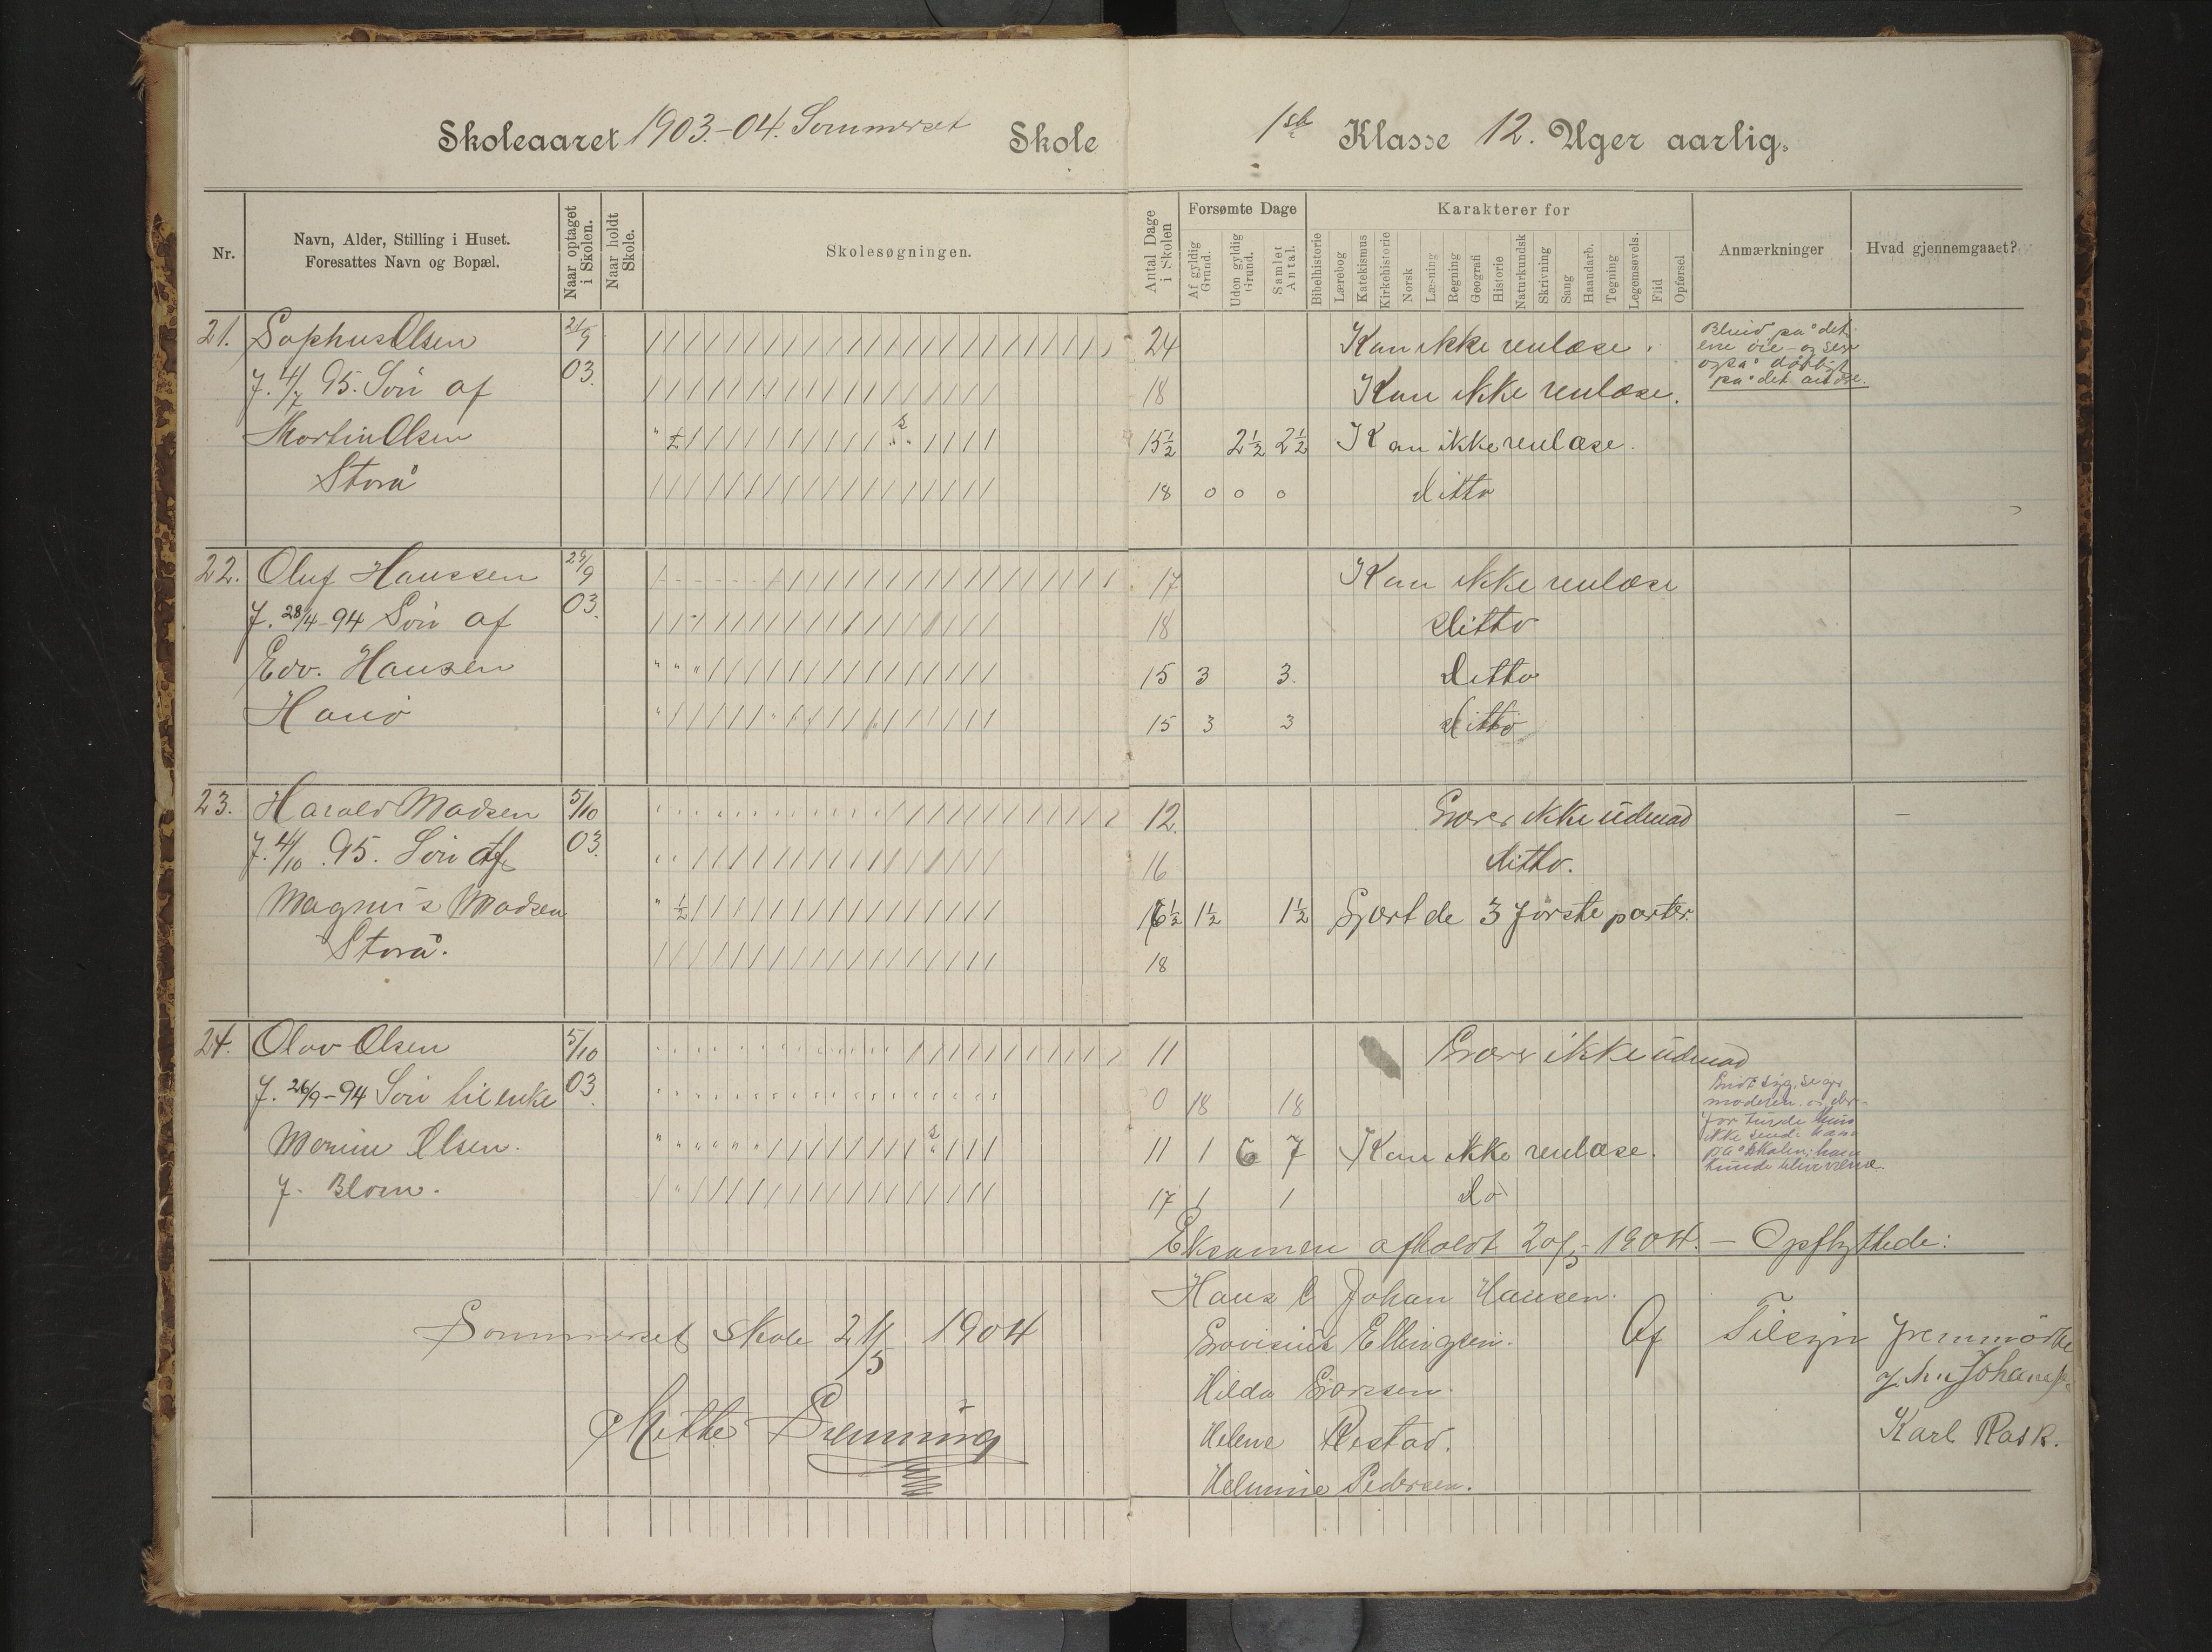 Skoleaaret 1903-04. Sommerset Skole
1ste Klasse 12. Uger aarlig.
Nr.
Navn, Alder, Stilling i Huset.
Foresattes Navn og Bopæl.
Naar optaget i Skolen.
Naar holdt Skole.
Skolesøgningen.
Antal Dage i Skolen
Forsømte Dage
Af gyldig Grund.
Uden gyldig Grund.
Samlet Antal.
Karakterer for
Bibelhistorie
Lærebog
Katekismus
Kirkehistorie
Norsk
Læsning
Regning
Geografi
Historie
Naturkundsk
Skrivning
Sang
Haandarb.
Tegning
Legemsøvels.
Flid
Opførsel
Anmærkninger
Hvad gjennemgaaet?
21. Sophus Olsen 21/9 24 Kan ikke renlæse. Blind på det
ene öie - og ser
også dårligt
på det andre.
f. 4/7 95. Sön af 03. 18 Kan ikke renlæse.
Martin Olsen 15½ 2½ 2½ Kan ikke renlæse.
Storå 18 0 0 0 ditto
22. Oluf Hanssen 29/9 17 Kan ikke renlæse
f. 28/4-94 Sön af 03. 18 ditto
Edv. Hansen 15 3 3. ditto
15 3 3 ditto
23. Harald Madsen 5/10 12. Svarer ikke udenad
f. 4/10 95. Sön af 03. 16 ditto.
Magnus Madsen ½ 16½ 1½ 1½ Lært de 3 förste parter.
Storå. 18
24. Olav Olsen 5/10 11 Svarer ikke udenad
f. 26/9-94 Sön til enke 03. 0 18 18
Olsen. 11 1 6 7 Kan ikke renlæse.
17 1 1 do
Ondt sig, siger
moderen og der-
for turde hun
ikke sende ham
på skolen; han
kunde blive værre.
Eksamen afholdt 20/5-1904. - Opflyttede:
Hans C Johan Hansen.
Ellingsen.
Hilda Larssen.
Helene Restad.
Helmine Pedersen.
Sommerset skole 21/5 1904
Mette
Af Tilsyn fremmödte
Johans.
Karl Rask.